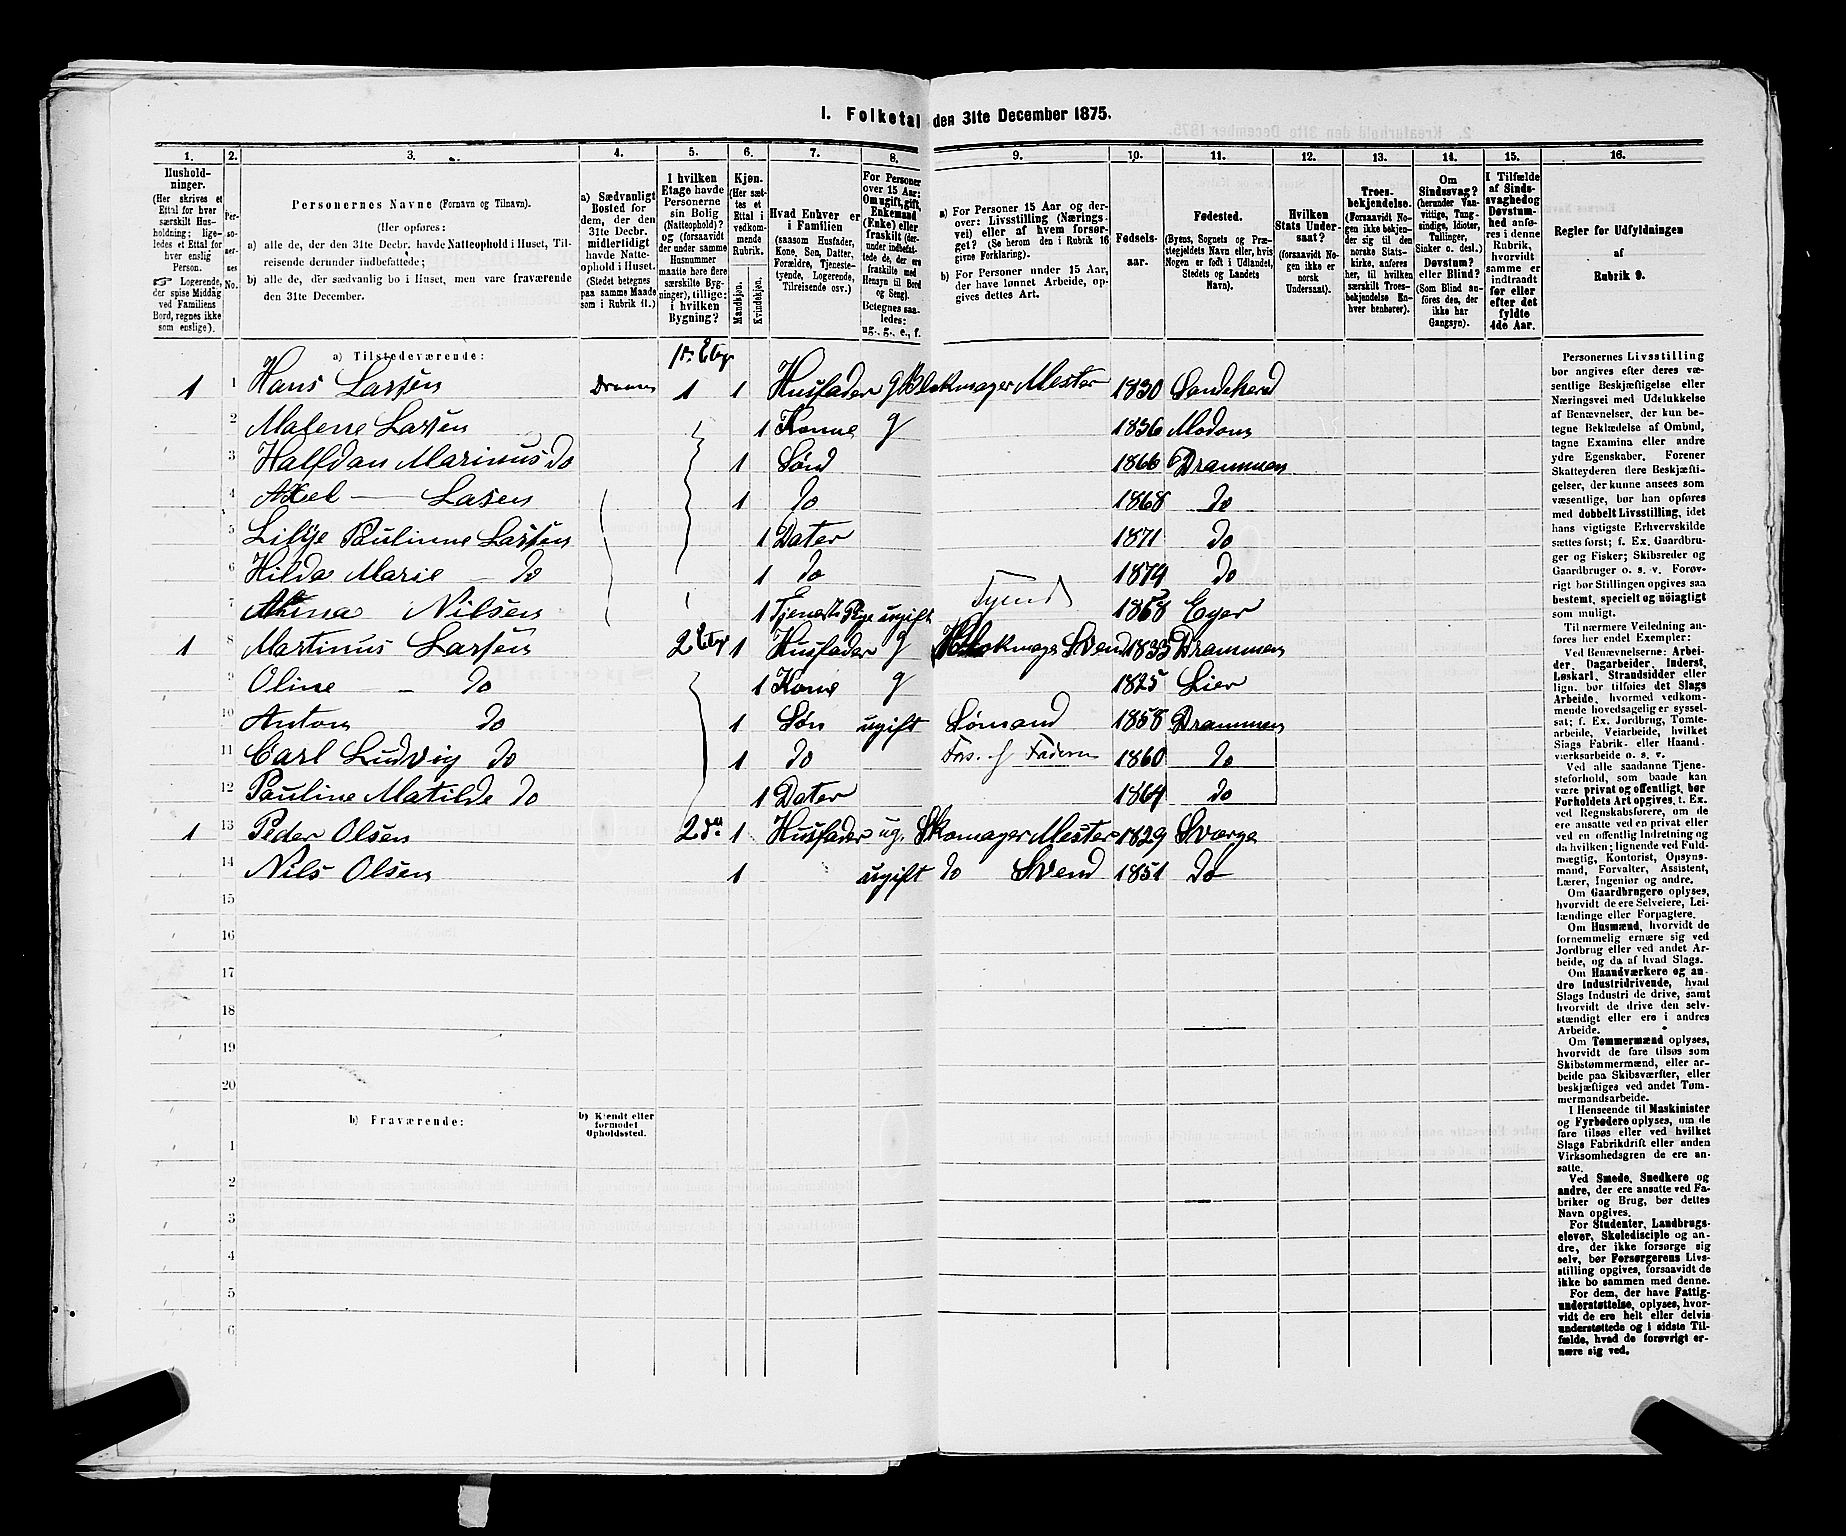 I. Folketal den 31te December 1875.
1. 2. 3. 4. 5. 6. 7. 8. 9. 10. 11. 12. 13. 14. 15. 16.
Husholdninger. (Her skrives et Ettal for hver særskilt Husholdning; ligeledes et Ettal for hver enslig Person. Logerende, der spise Middag ved Familiens Bord, regnes ikke som enslige).
Personernes No.
Personernes Navne (Fornavn og Tilnavn).
(Her opføres:
a) alle de, der den 31te Decbr. havde Natteophold i Huset, Tilreisende derunder indbefattede;
b) alle de, der sædvanlig bo i Huset, men vare fraværende den 31te December.
a) Sædvanligt Bosted for dem, der den 31te Decbr. midlertidigt havde Natteophold i Huset. (Stedet betegnes paa samme Maade som i Rubrik 11.)
I hvilken Etage havde Personerne sin Bolig (Natteophold)? og (forsaavidt der under samme Husnummer maatte høre flere særskilte Bygninger), tillige: i hvilken Bygning?
Kjøn. (Her sættes et Ettal i vedkommende Rubrik. Mandskjøn. Kvindekjøn.
Hvad Enhver er i Familien (saasom Husfader, Kone, Søn, Datter, Forældre, Tjenestetyende, Logerende, Tilreisende osv.)
For Personer over 15 Aar: Om ugift, gift, Enkemand (Enke) eller fraskilt (derunder indbefattede de, der ere fraskilte med Hensyn til Bord og Seng). Betegnes saaledes: ug., g., e., f.
a) For Personer 15 Aar og derover: Livsstilling (Næringsvei) eller af hvem forsørget? (Se herom den i Rubrik 16 givne Forklaring).
b) For Personer under 15 Aar, der have lønnet Arbeide, opgives dettes Art.
Fødselsaar.
Fødested. (Byens, Sognets og Præstegjeldets Navn eller, hvis Nogen er født i Udlandet, Stedets og Landets Navn).
Hvilken Stats Undersaat? (forsaavidt Nogen ikke er norsk Undersaat).
Troesbekjendelse. (Forsaavidt Nogen ikke bekjender sig til den norske Statskirke, anføres her, til hvilken særskilt Troesbekjendelse Enhver henhører).
Om Sindssvag? (herunder Vanvittige, Tungsindige, Idioter, Tullinger, Sinker o. desl.) Døvstum? eller Blind? (Som Blind anføres den, der ikke har Gangsyn).
I Tilfælde af Sindssvaghed og Døvstumhed anføres i denne Rubrik, hvorvidt samme er indtraadt før eller efter det fyldte 4de Aar.
Regler for Udfyldningen af Rubrik 9.
a) Tilstedeværende:
1 1 Hans Larsen 1 1 Husfader g Mester 1830
2 Malene Larsen 1 Konne g 1836 Modom
3 Halfdan Marinus Do 1 Sønd 1866 Drammen
4 Axel — Lasen 1 do 1868 do
5 Lilje Paulinne Larsen 1 Dater 1871 do
6 Hilda Marie Do 1 do 1874 do
7 Nilsen 1 ugift Tyend Eger
1 8 Martinus Larsen 2 Etg 1 Husfader g Svend 1833 Drammen
9 Oline do 1 Kone g 1825 Lier
10 Anton do 1 Søn ugift Sømand 1858 Drammen
11 Carl Ludvig do 1 do Fors. af Faderen 1860 do
12 Pauline Matilde do 1 Dater 1864 do
1 13 Peder Olsen 2 do 1 Husfader ug. Skomager Mester 1829 Sværge
14 Nils Olsen 1 ugift do Svend 1851 do
15
16
17
18
19
20
b) Fraværende:
b) Kjendt eller formodet Opholdssted.
1
2
3
4
5
6
Personernes Livsstilling bør angives efter deres væsentlige Beskjæftigelse eller Næringsvei med Udelukkelse af Benævnelser, der kun betegne Beklædelse af Ombud, tagne Examina eller andre ydre Egenskaber. Forener Skatteyderen flere Beskjæftigelser, der kunne ansees som væsentlige, bør han opføres med dobbelt Livsstilling, idet hans vigtigste Erhvervskilde sættes først; f. Ex. Gaardbruger og Fisker; Skibsreder og Gaardbruger o. s. v. Forøvrigt bør Stillingen opgives saa bestemt, specielt og nøiagtigt som muligt.
Til nærmere Veiledning anføres her endel Exempler:
Ved Benævnelserne: Arbeider, Dagarbeider, Inderst, Løskarl, Strandsidder eller lign. bør tilføies det Slags Arbeide, hvormed vedkommende hovedsagelig er sysselsat; f. Ex. Jordbrug, Tomtearbeide, Veiarbeide, hvilket Slags Fabrik- eller Haandværksarbeide o. s. v.
Ved alle saadanne Tjenesteforhold, som baade kan være privat og offentligt, bør Forholdets Art opgives, t. Ex. ved Regnskabsførere, om de ere ansatte ved en privat eller ved en offentlig Indretning og da hvilken; lignende ved Fuldmægtig, Kontorist, Opsynsmand, Forvalter, Assistent, Lærer, Ingeniør og andre.
Om Gaardbrugere oplyses, hvorvidt de ere Selveiere, Leilændinge eller Forpagtere.
Om Husmænd, hvorvidt de fornemmelig ernære sig ved Jordbrug eller ved andet Arbeide, og da af hvad Slags.
Om Haandværkere og andre Industridrivende, hvad Slags Industri de drive, samt hvorvidt de drive den selvstændigt eller ere i andres Arbeide.
Om Tømmermænd oplyses, hvorvidt de fare tilsøs som Skibstømmermænd, eller arbeide paa Skibsværfter, eller beskjæftiges ved andet Tømmermandsarbeide.
I Henseende til Maskinister og Fyrbødere oplyses, om de fare tilsøs eller ved hvilket Slags Fabrikdrift eller anden Virksomhedsgren de ere ansatte.
Ved Smede, Snedkere og andre, der ere ansatte ved Fabriker og Brug, bør dettes Navn opgives.
For Studenter, Landbrugselever, Skoledisciple og andre, der ikke forsørge sig selv, bør Forsørgerens Livsstilling opgives, forsaavidt de ikke bo sammen med denne.
For dem, der have Fattigunderstøttelse, oplyses, hvorvidt de ere helt eller delvis understøttede og i sidste Tilfælde, hvad de forøvrigt ernære sig ved.